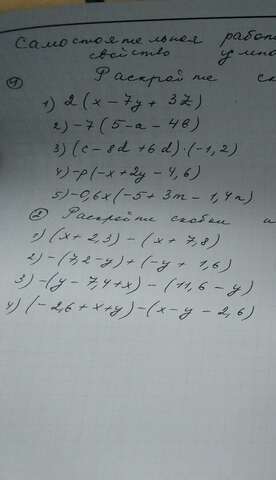 Самостоятельная работ
свойство умно
① Раскройте ск
1) 2(x - 7y + 3z)
2) -7(5 - a - 4b)
3) (c - 8d + 6d) · (-1,2)
4) -p(-x + 2y - 4,6)
5) -0,6x(-5 + 3m - 1,4n)
② Раскройте скобки и
1) (x + 2,3) - (x + 7,8)
2) -(7,2 - y) + (-y + 1,6)
3) -(y - 7,4 + x) - (11,6 - y)
4) (-2,6 + x + y) - (x - y - 2,6)